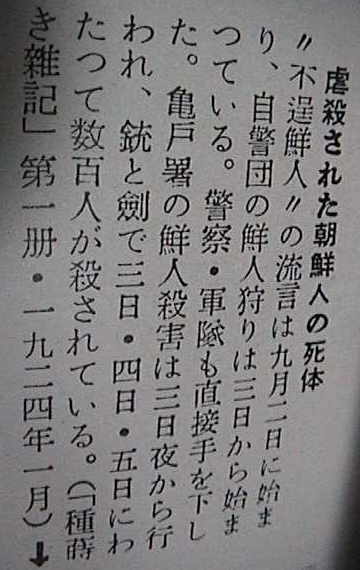 虐殺された朝鮮人の死体
〝不逞鮮人〟の流言は九月二日に始ま
り、自警団の鮮人狩りは三日から始ま
つている。警察・軍隊も直接手を下し
た。亀戸署の鮮人殺害は三日夜から行
われ、銃と劍で三日・四日・五日にわ
たつて数百人が殺されている。(「種蒔
き雑記」第一册・一九二四年一月)↓